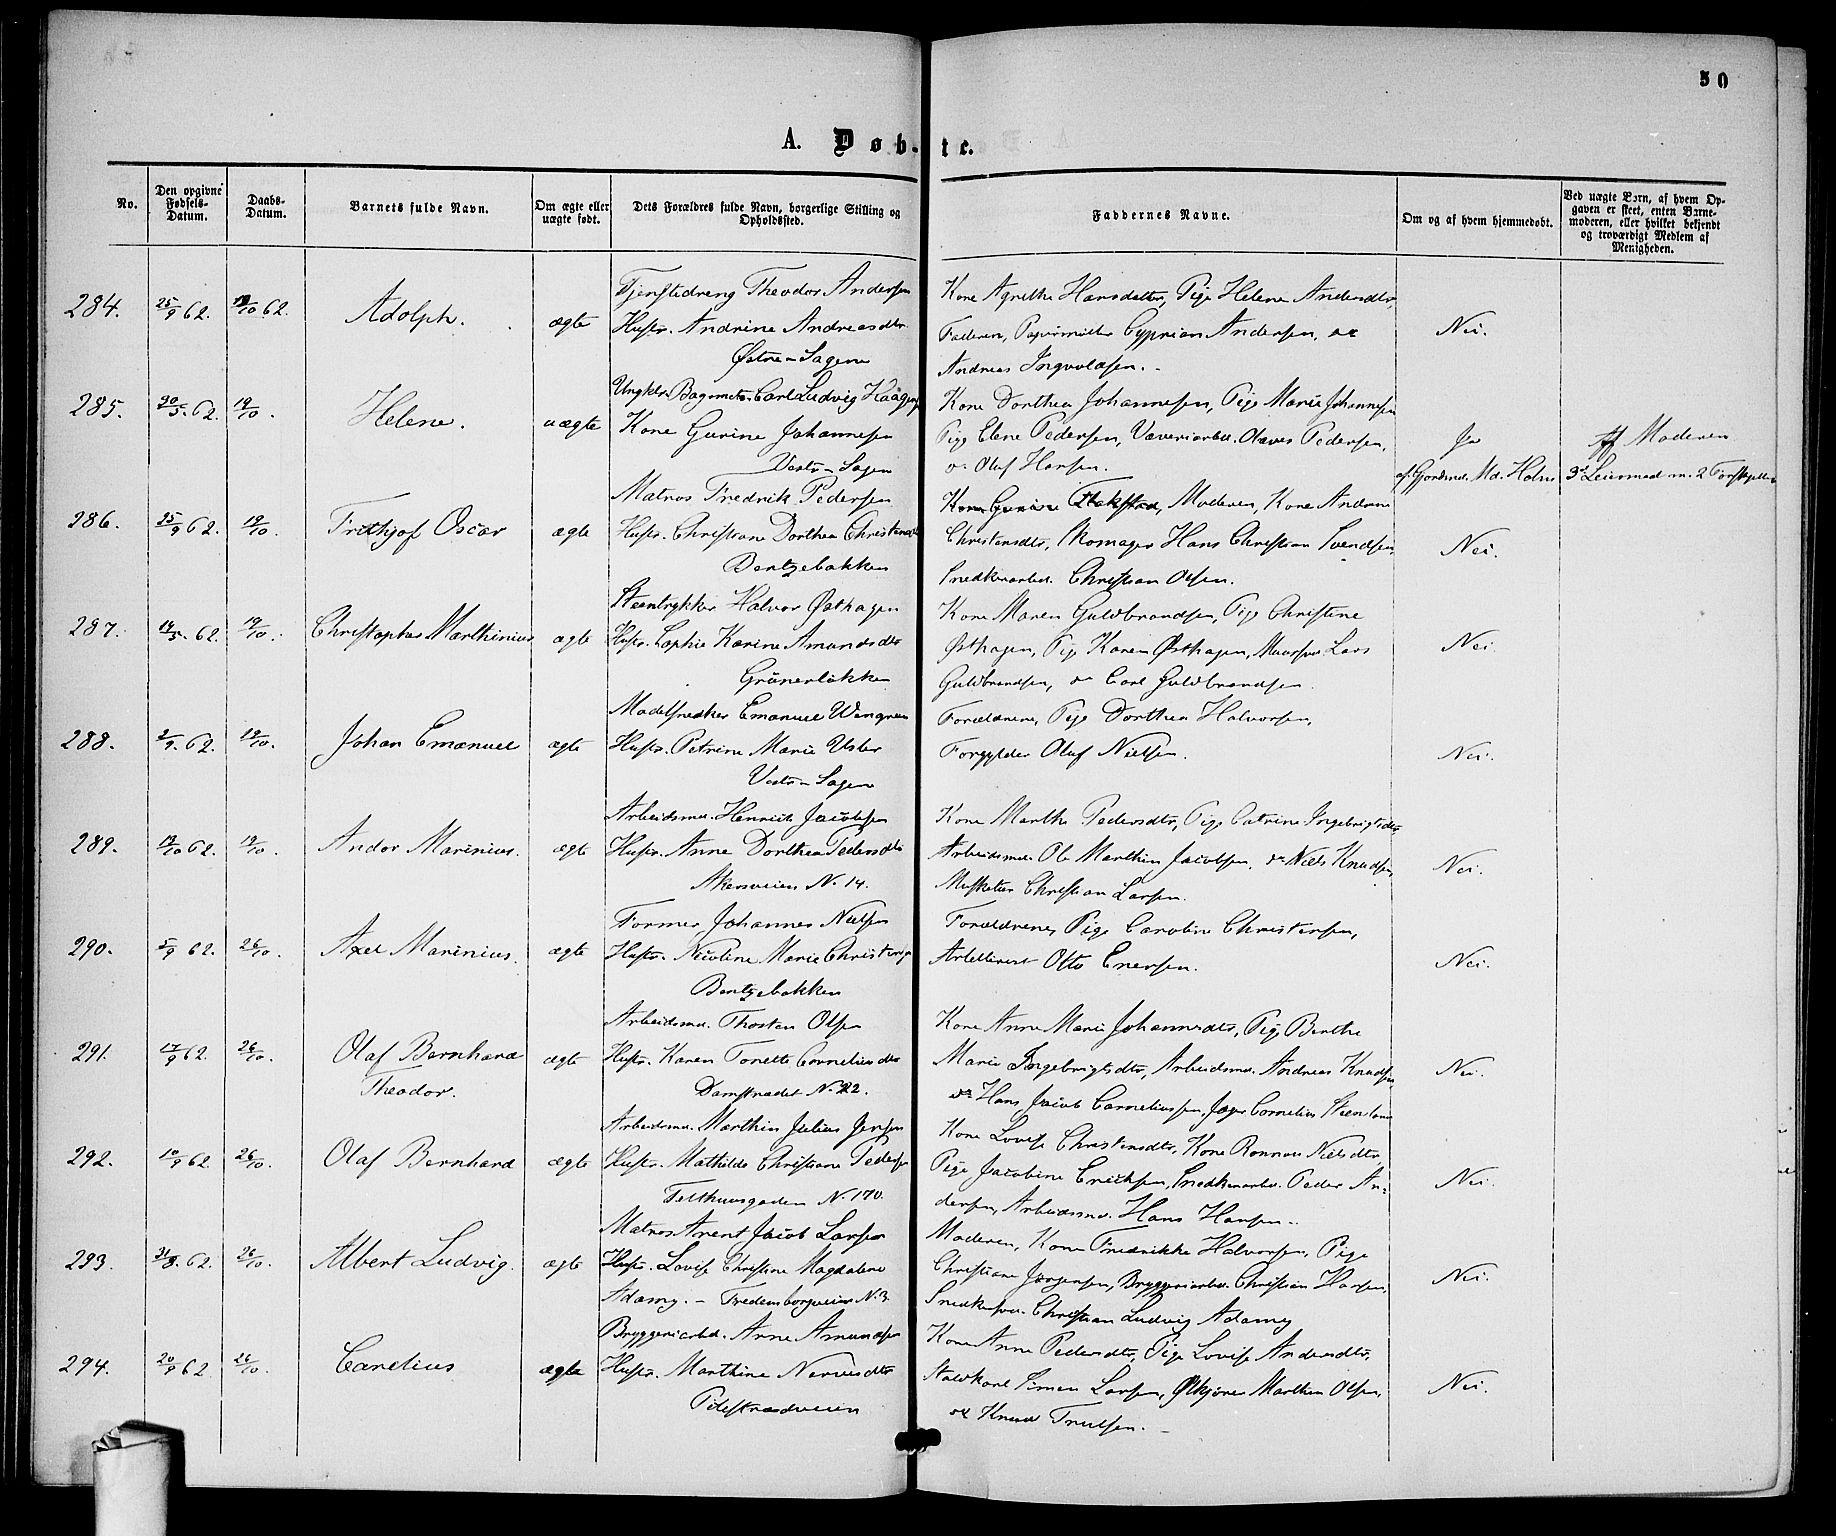 50
A. Døbte.
No.
Den opgivne Fødsels-Datum.
Daabs-Datum.
Barnets fulde Navn.
Om ægte eller uægte født.
Dets Forældres fulde Navn, borgerlige Stilling og Opholdssted.
Faddernes Navne.
Om og af hvem hjemmedøbt.
Ved uægte Børn, af hvem Opgaven er skeet, enten Barnemoderen, eller hvilket bekjendt og troværdigt Medlem af Menigheden.
284. 25/9 62. 19/10 62. Adolph. ægte
Tjenstedreng Theodor Andersen
Hustr. Andrine Andreasdtr.
Østre Sagene
Kone Agrethe Hansdatter, Pige Helene Andersdtr,
Faderen, Papirmøller Cyprian Andersen, og
Andreas Ingvoldsen.
Nei.
285. 62. 19/10. Helene. uægte
Ungkr. Bagermstr. Carl Ludvig
Kone Gurine Johannesen
Vestr. Sagen
Kone Dorthea Johannesen, Pige Marie Johannesen
Pige Elene Pedersen, Væveriarbd. Olaves Pedersen,
og Oluf Hansen.
Ja
af Gjordmd. Md. Holm
Af Moderen
3d Leiermaal m. 2
286. 25/9 62. 19/10. Frithjof Oscar ægte
Matros Fredrik Pedersen
Hustr. Christiane Dorthea
Bentzebakken
Moderen, Kone Andrine
Christensdtr, Skomager Hans Christian Svendsen,
Snedkerarbd. Christian Olsen.
Nei.
287. 14/5 62. 19/10. Christopher Marthinius ægte
Steentrykker Halvor Østhagen
Hustr. Sophie Karine Amundsdtr
Grünerløkken
Kone Maren Guldbrandsen, Pige Christine
Østhagen, Pige Karen Østhagen, Muursvd. Lars
Guldbrandsen, og Carl Guldbrandsen.
Nei.
288. 2/9. 62. 19/10. Johan Emanuel ægte
Modelsnedker Emanuel Wengren
Hustr. Petrine Marie
Vestr. Sagen
Forældrene, Pige Dorthea Halvorsen,
Forgylder Oluf Nielsen.
Nei.
289. 13/10 62. 19/10. Andor Marinius. ægte
Arbeidsmd. Henrik Jacobsen
Hustr. Anne Dorthea Pedersdtr
Akersveien N. 14.
Kone Marthe Pedersdtr, Pige Catrine Ingebrigtsdtr
Arbeidsmd. Ole Marthin Jacobsen, og Niels Knudsen,
Musketeer Christian Larsen.
Nei.
290. 5/9 62. 26/10. Axel Marinius. ægte
Former Johannes Nielsen
Hustr. Nicoline Marie
Bentzebakken
Forældrene, Pige Caroline Christensen,
Artellerist Otto Enersen.
Nei.
291. 17/9 62. 26/10. Olaf Bernhard
Theodor. ægte
Arbeidsmd. Thosten Olsen
Hustr. Karen Tonette Corneliusdtr
Damstrædet N. 22.
Kone Anne Marie Johannesdtr, Pige Berthe
Marie Ingebrigtsdtr, Arbeidsmd. Andreas Knudsen,
og Hans Jacob Corneliussen, Jæger Cornelius
Nei.
292. 10/9 62. 26/10. Olaf Bernhard ægte
Arbeidsmd. Marthin Julius Jensen
Hustr. Mathilde Christiane Pedersen
Telthuusgaden N. 170.
Kone Lovise Christensdtr, Kone Ronnau Nielsdtr,
Pige Jacobine Erichsen, Snedkerarbd. Peder An-
dersen, Arbeidsmd. Hans Hansen.
Nei.
293. 31/8. 62. 26/10. Albert Ludvig. ægte
Matros Arent Jacob Larsen
Hustr. Lovise Christine Magdalene
Adamy. – Fredensborgveien N. 3.
Moderen, Kone Fredrikke Halvorsen, Pige
Christiane Jørgensen, Bryggeriarbd. Christian Hansen,
Snedkersvd. Christian Ludvig Adamy
Nei.
294. 20/9 62. 26/10. Carelius ægte
Bryggeriarbd. Arne Amundsen
Hustr. Marthine
Pilestrædveien
Kone Anne Pedersdtr, Pige Lovise Andersdtr,
Staldkarl Simen Larsen, Ølkjører Marthin Olsen,
og Knud Trulsen.
Nei.